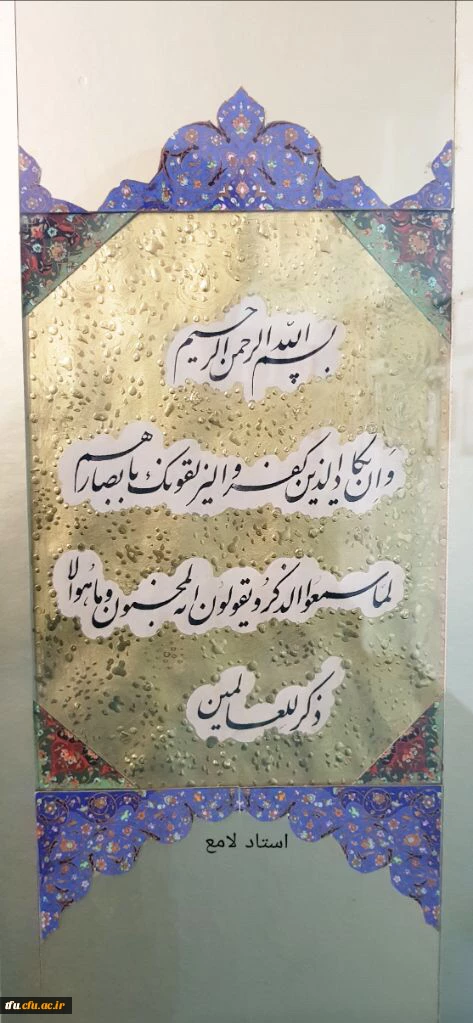 بسم الله الرحمن الرحیم
وَان یکاد الذین کفروا لیزلقونک بابصارهم
لما سمعوا الذکر و یقولون انه لمجنون و ما هو الا
ذکر للعالمین
استاد لامع
tfu.cfu.ac.ir